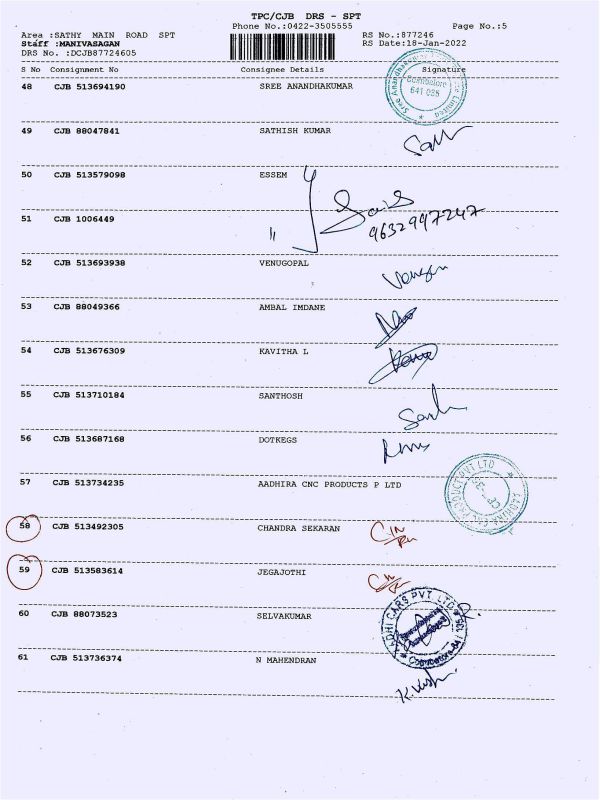 TPC/CJB DRS - SPT
Phone No.:0422-3505555 Page No.:5
Area :SATHY MAIN ROAD SPT RS No.:877246
Staff :MANIVASAGAN RS Date:18-Jan-2022
DRS No. :DCJB87724605
S No Consignment No Consignee Details Signature
48 CJB 513694190 SREE ANANDHAKUMAR
Coimbatore
641 035
49 CJB 88047841 SATHISH KUMAR
50 CJB 513579098 ESSEM
51 CJB 1006449 "
9632997247
52 CJB 513693938 VENUGOPAL
53 CJB 88049366 AMBAL IMDANE
54 CJB 513676309 KAVITHA L
55 CJB 513710184 SANTHOSH
56 CJB 513687168 DOTKEGS
57 CJB 513734235 AADHIRA CNC PRODUCTS P LTD
58 CJB 513492305 CHANDRA SEKARAN
59 CJB 513583614 JEGAJOTHI
60 CJB 88073523 SELVAKUMAR
61 CJB 513736374 N MAHENDRAN